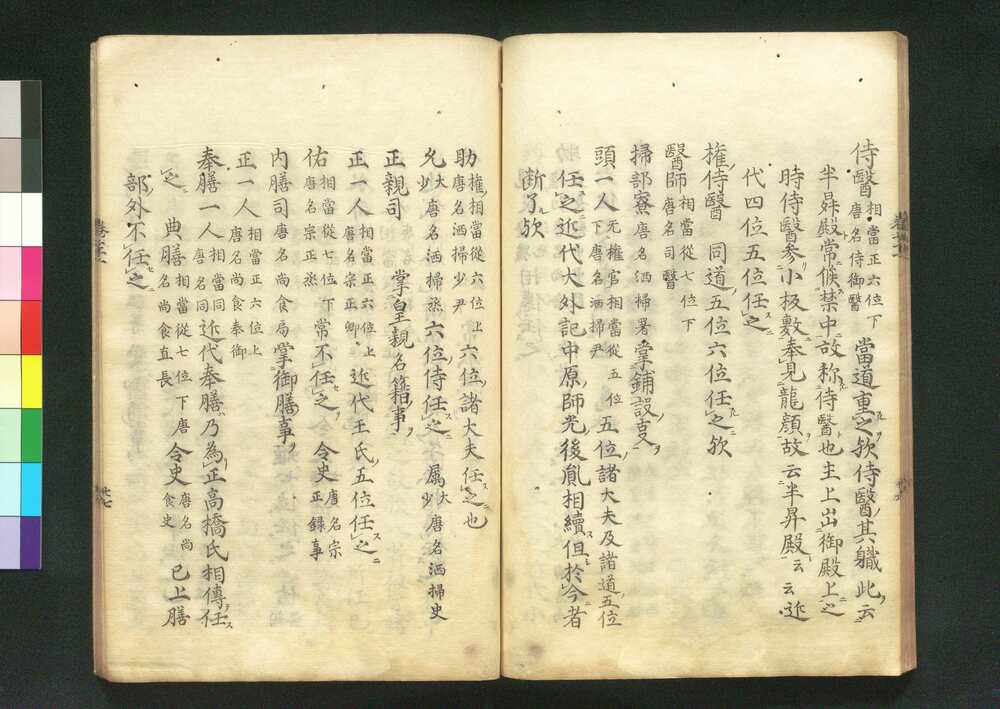 侍醫相當正六位下唐名侍御醫當道重之欤侍醫其軄此云
半昇殿常候禁中故称侍醫也主上出御殿上之
時侍醫参小板敷奉見龍顔故云半昇殿云云近
代四位五位任之
權侍醫 同道五位六位任之欤
醫師相當從七位下唐名司醫
掃部寮唐名洒掃署掌鋪設支
頭一人无權官相當從五位下唐名洒掃尹五位諸大夫及諸道五位
任之近代大外記中原師光後胤相續但於今者
断了欤
助權相當從六位上唐名洒掃少尹六位諸大夫任之也
允大少唐名洒掃丞六位侍任之 属大少唐名洒掃史
正親司 掌皇親名籍事
正一人相當正六位上唐名宗正卿近代王氏五位任之
佑相當從七位下唐名宗正丞常不任之 令史唐名宗正録事
内膳司唐名尚食局掌御膳事
正一人相當正六位上唐名尚食奉御
奉膳一人相當同唐名同近代奉膳乃為正高橋氏相傳任
之 典膳相當從七位下唐名尚食直長 令史唐名尚食史 已上膳
部外不任之